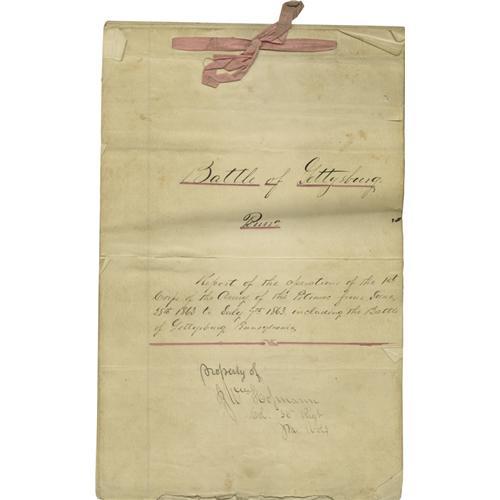 Battle of Gettysburg.
Penna
Report of the operations of the 1st
Corps of the Army of the Potomac from June
25th 1863 to July 7th 1863 including the Battle
of Gettysburg Pennsylvania
Property of
Hofmann
Col. 56 Regt
Pa Vols